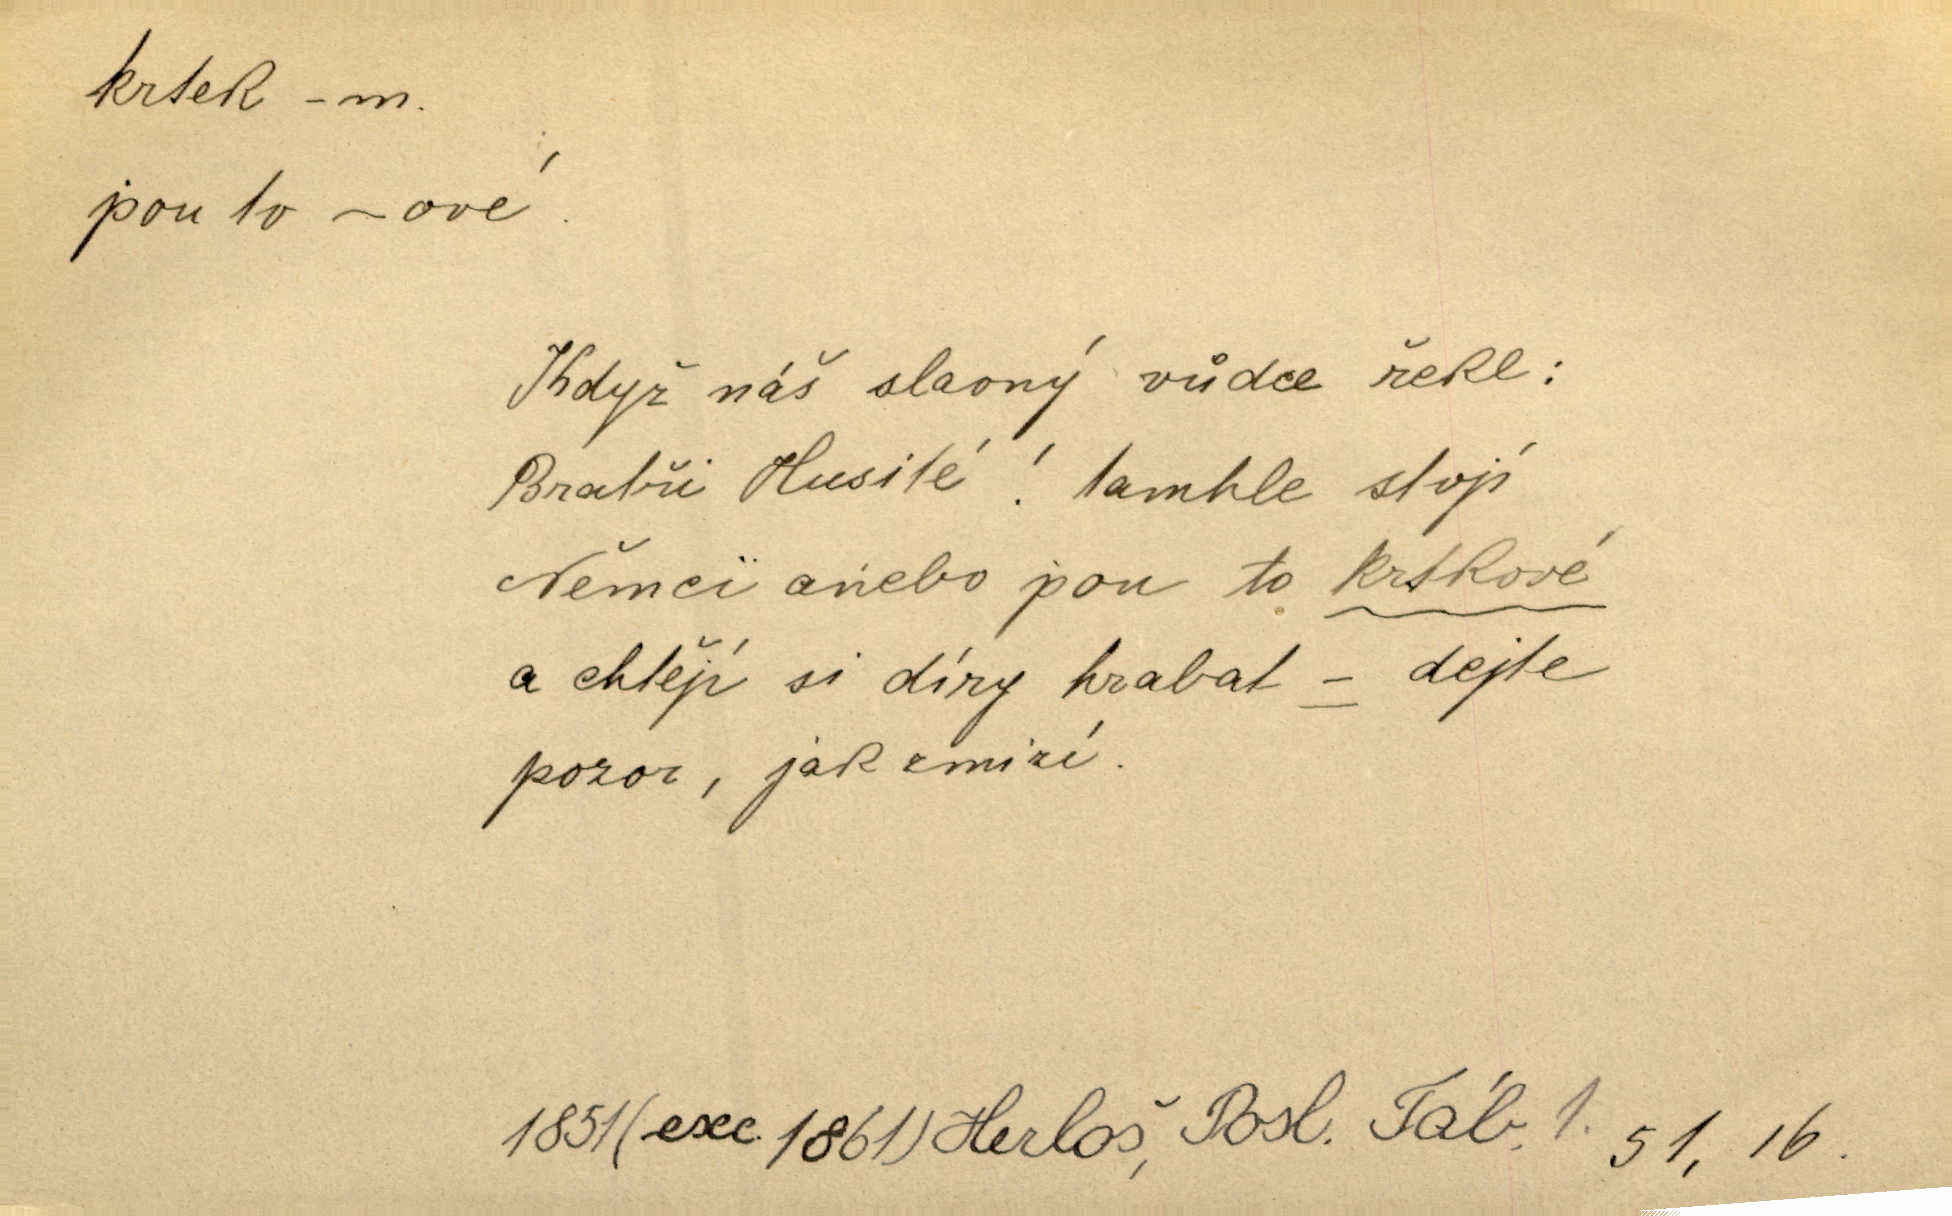 krtek - m.
pou to ~ ové.
Když náš slavný vůdce řekl:
Bratři Husité! tamhle stojí
Němci anebo pou to krtkové
a chtějí si díry hrabat - dejte
pozor, jak zmizí.
1851 (exc. 1861) Herloš, Posl. Táb. 1. 51, 16.